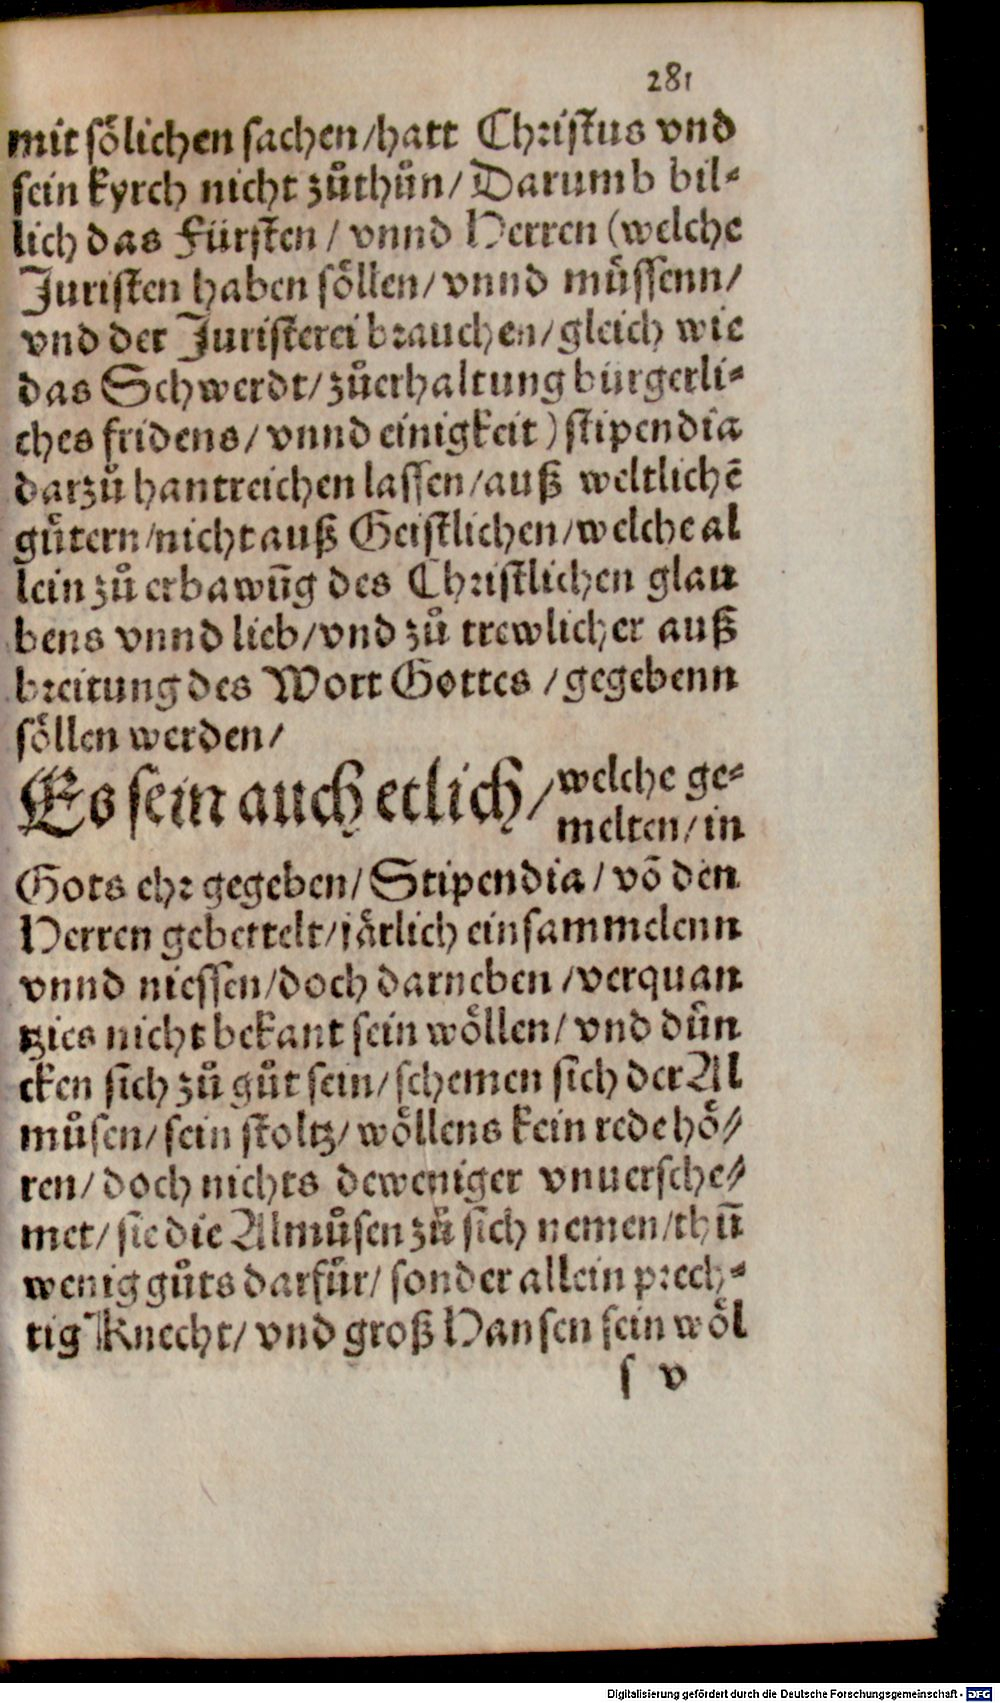 281
mit sölichen sachen/hatt Christus vnd
sein kyrch nicht zůthůn/ Darumb bil-
lich das Fürsten / vnnd Herren (welche
Juristen haben söllen/ vnnd müssenn/
vnd der Juristerei brauchen/gleich wie
das Schwerdt/ zůerhaltung bürgerli-
ches fridens/ vnnd einigkeit) stipendia
darzů hantreichen lassen/auß weltlichē
gůtern/nicht auß Geistlichen/welche al
lein zů erbawūg des Christlichen glau
bens vnnd lieb/vnd zů trewlicher auß
breitung des Wort Gottes /gegebenn
söllen werden/
Es sein auch etlich/ welche ge-
melten/in
Gots ehr gegeben/ Stipendia / võ den
Herren gebettelt/järlich einsammelenn
vnnd niessen/doch darneben /verquan
tzies nicht bekant sein wöllen/ vnd dün
cken sich zů gůt sein/ schemen sich der Al
můsen/ sein stoltz/ wöllens kein rede hö-
ren/ doch nichts deweniger vnuersche-
met/ sie die Almůsen zů sich nemen/thū
wenig gůts darfür/ sonder allein prech-
tig Knecht/ vnd groß Hansen sein wöl
s v
Digitalisierung gefördert durch die Deutsche Forschungsgemeinschaft - DFG